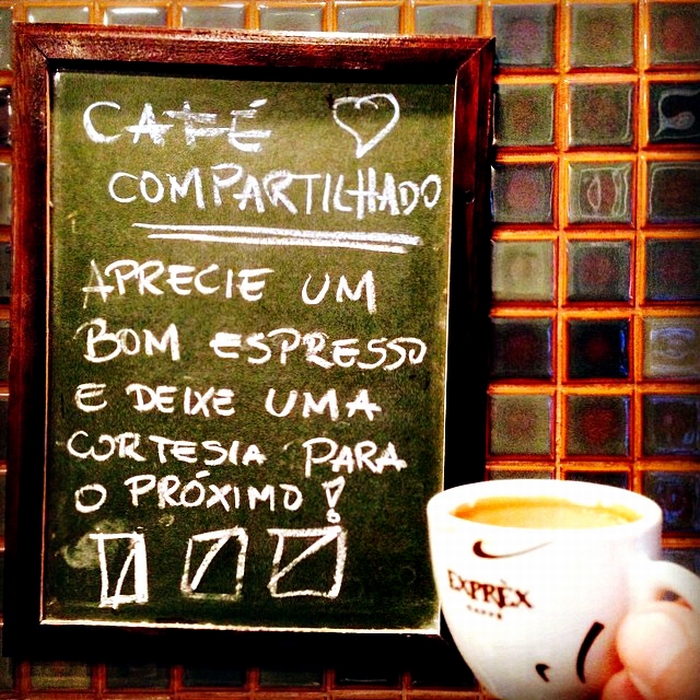 CAFÉ
COMPARTILHADO
APRECIE UM
BOM ESPRESSO
E DEIXE UMA
CORTESIA PARA
O PRÓXIMO!
EXPRÈX
CAFFÈ